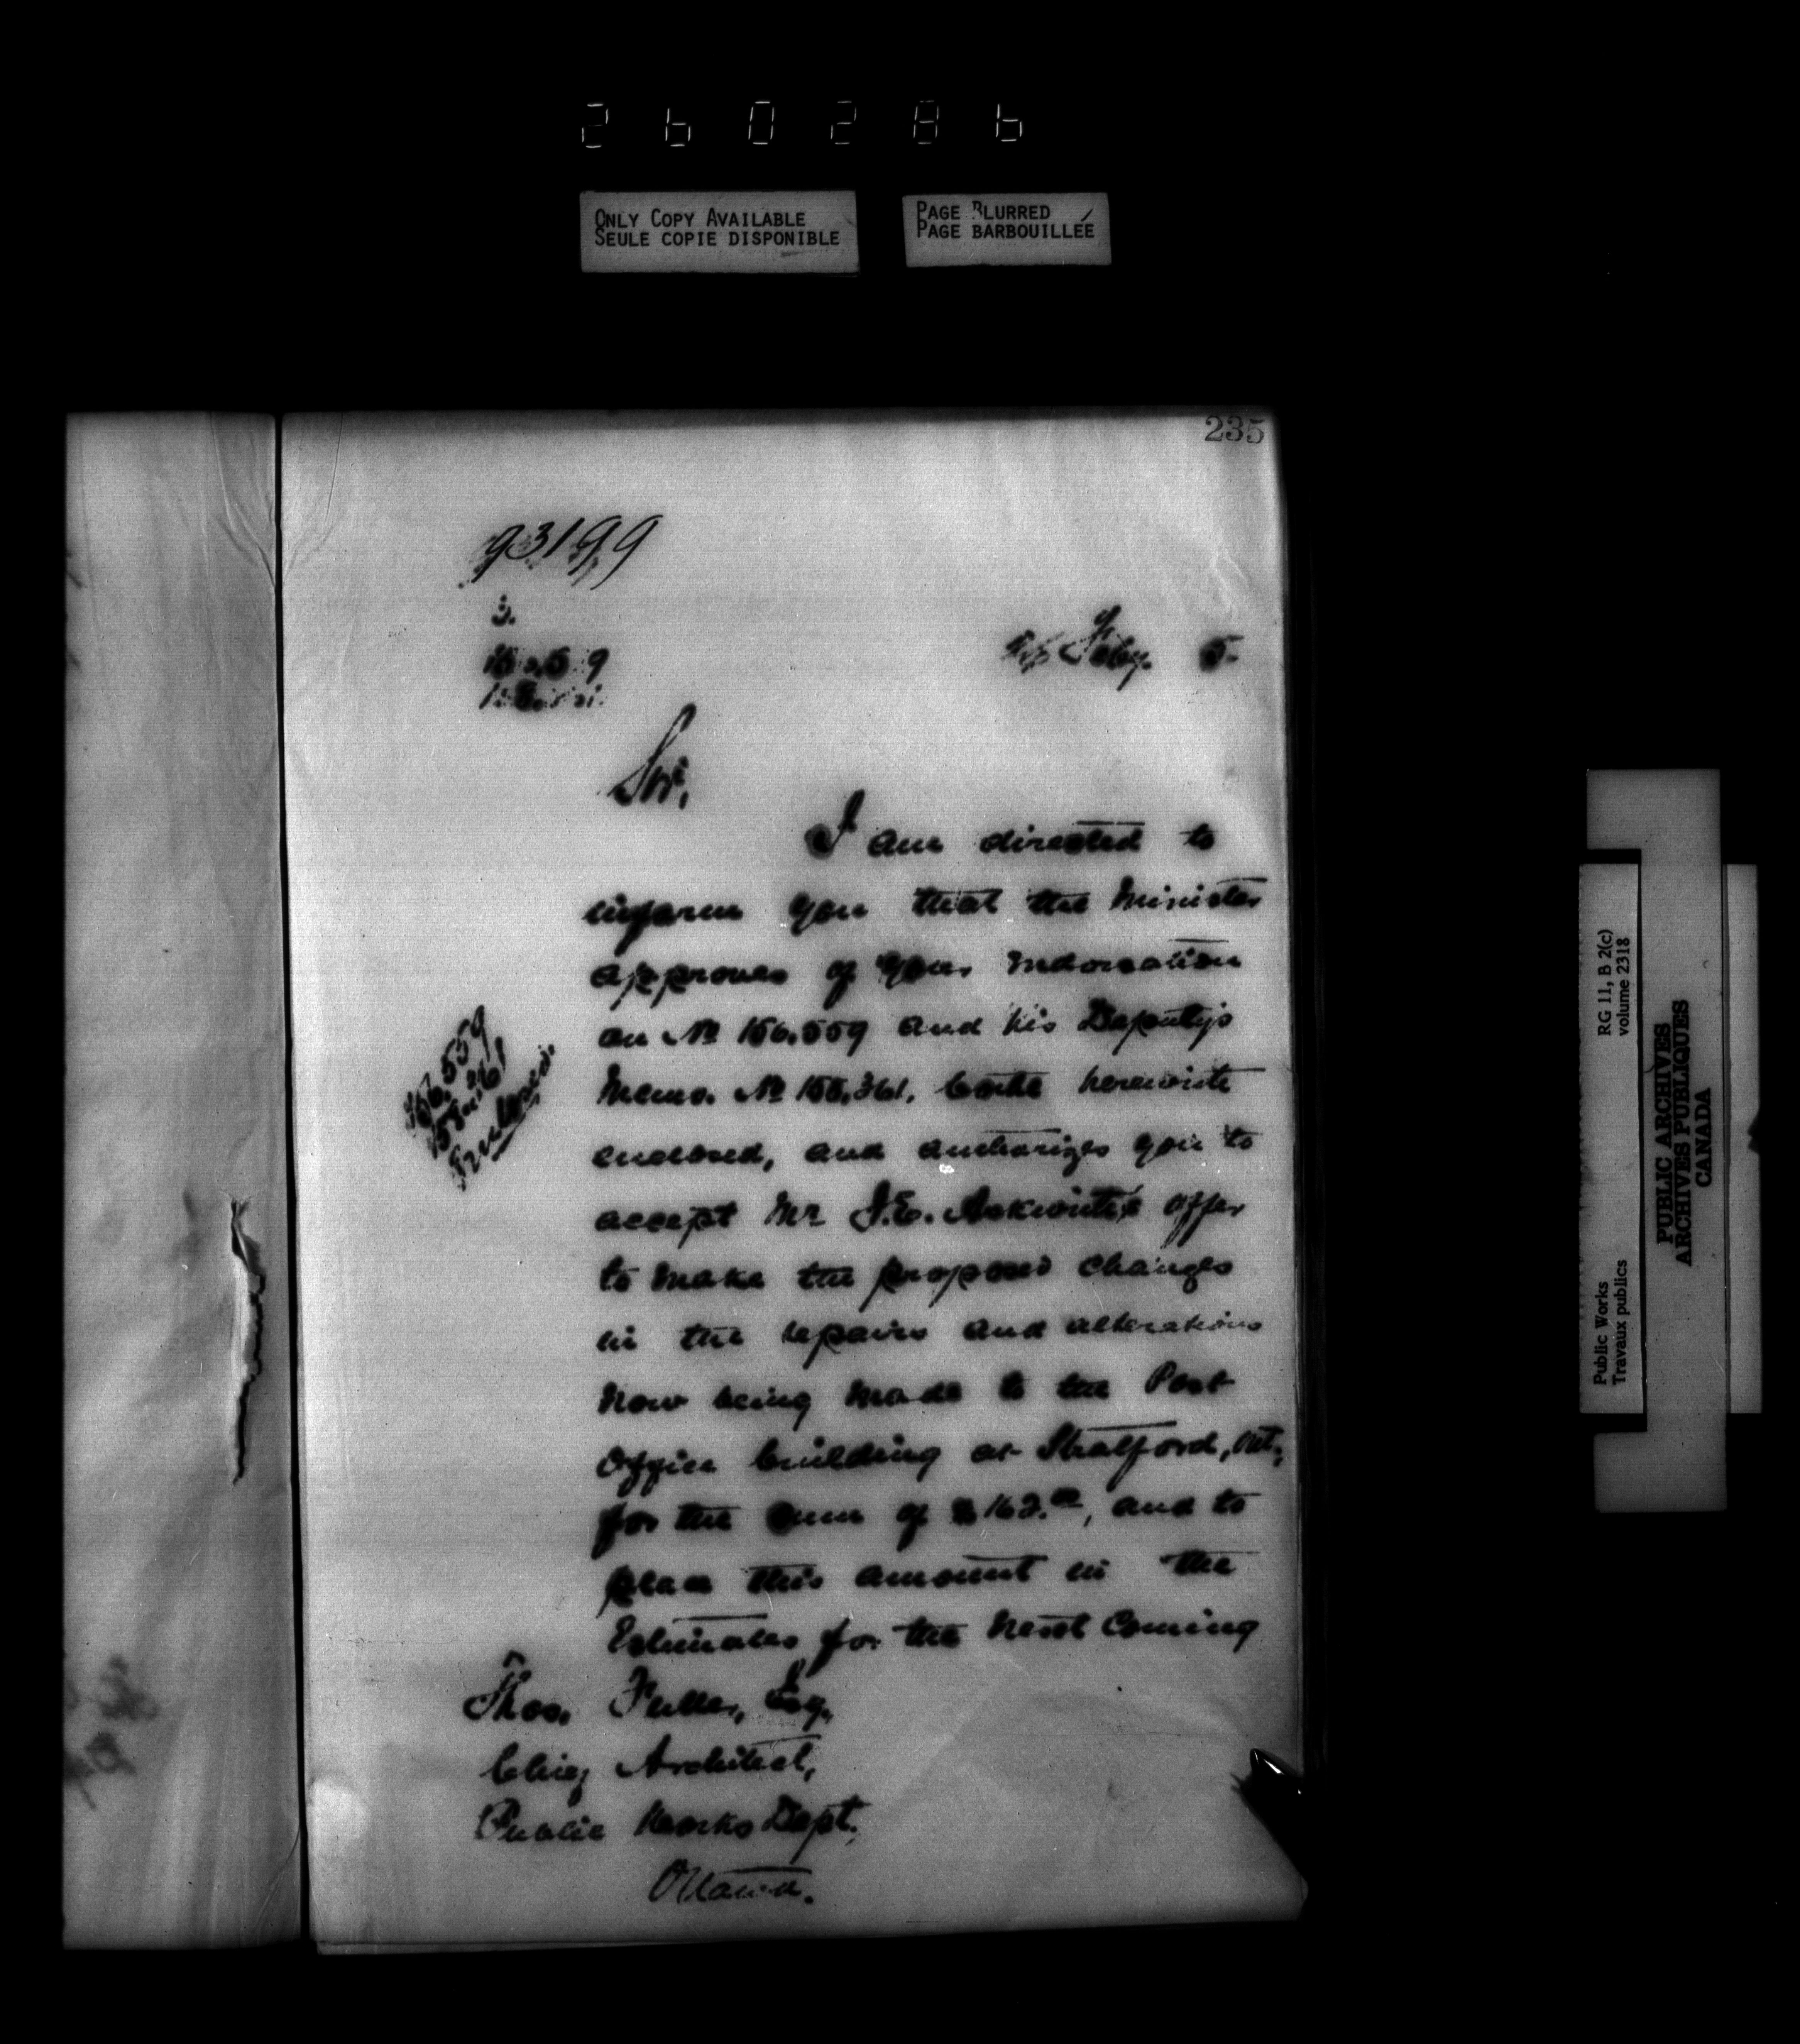 260286
ONLY COPY AVAILABLE
SEULE COPIE DISPONIBLE
PAGE BLURRED
PAGE BARBOUILLÉE
235
93199
Feby. 5.
Sir,
I am directed to
inform you that the Minister
approves of your indorsation
on No 156.559 and his Deputy's
Memo. No 155,361, both herewith
enclosed, and authorizes you to
accept Mr J.E. Askwith's offer
to make the proposed changes
in the repairs and alterations
now being made to the Post
Office building at Stratford, Ont.,
for the sum of $162.00, and to
place this amount in the
Estimates for the next Coming
156.559
Enclosed.
Thos. Fuller, Esq.
Chief Architect,
Public Works Dept.
Ottawa.
Public Works
Travaux publics
RG 11, B 2(c)
volume 2318
PUBLIC ARCHIVES
ARCHIVES PUBLIQUES
CANADA